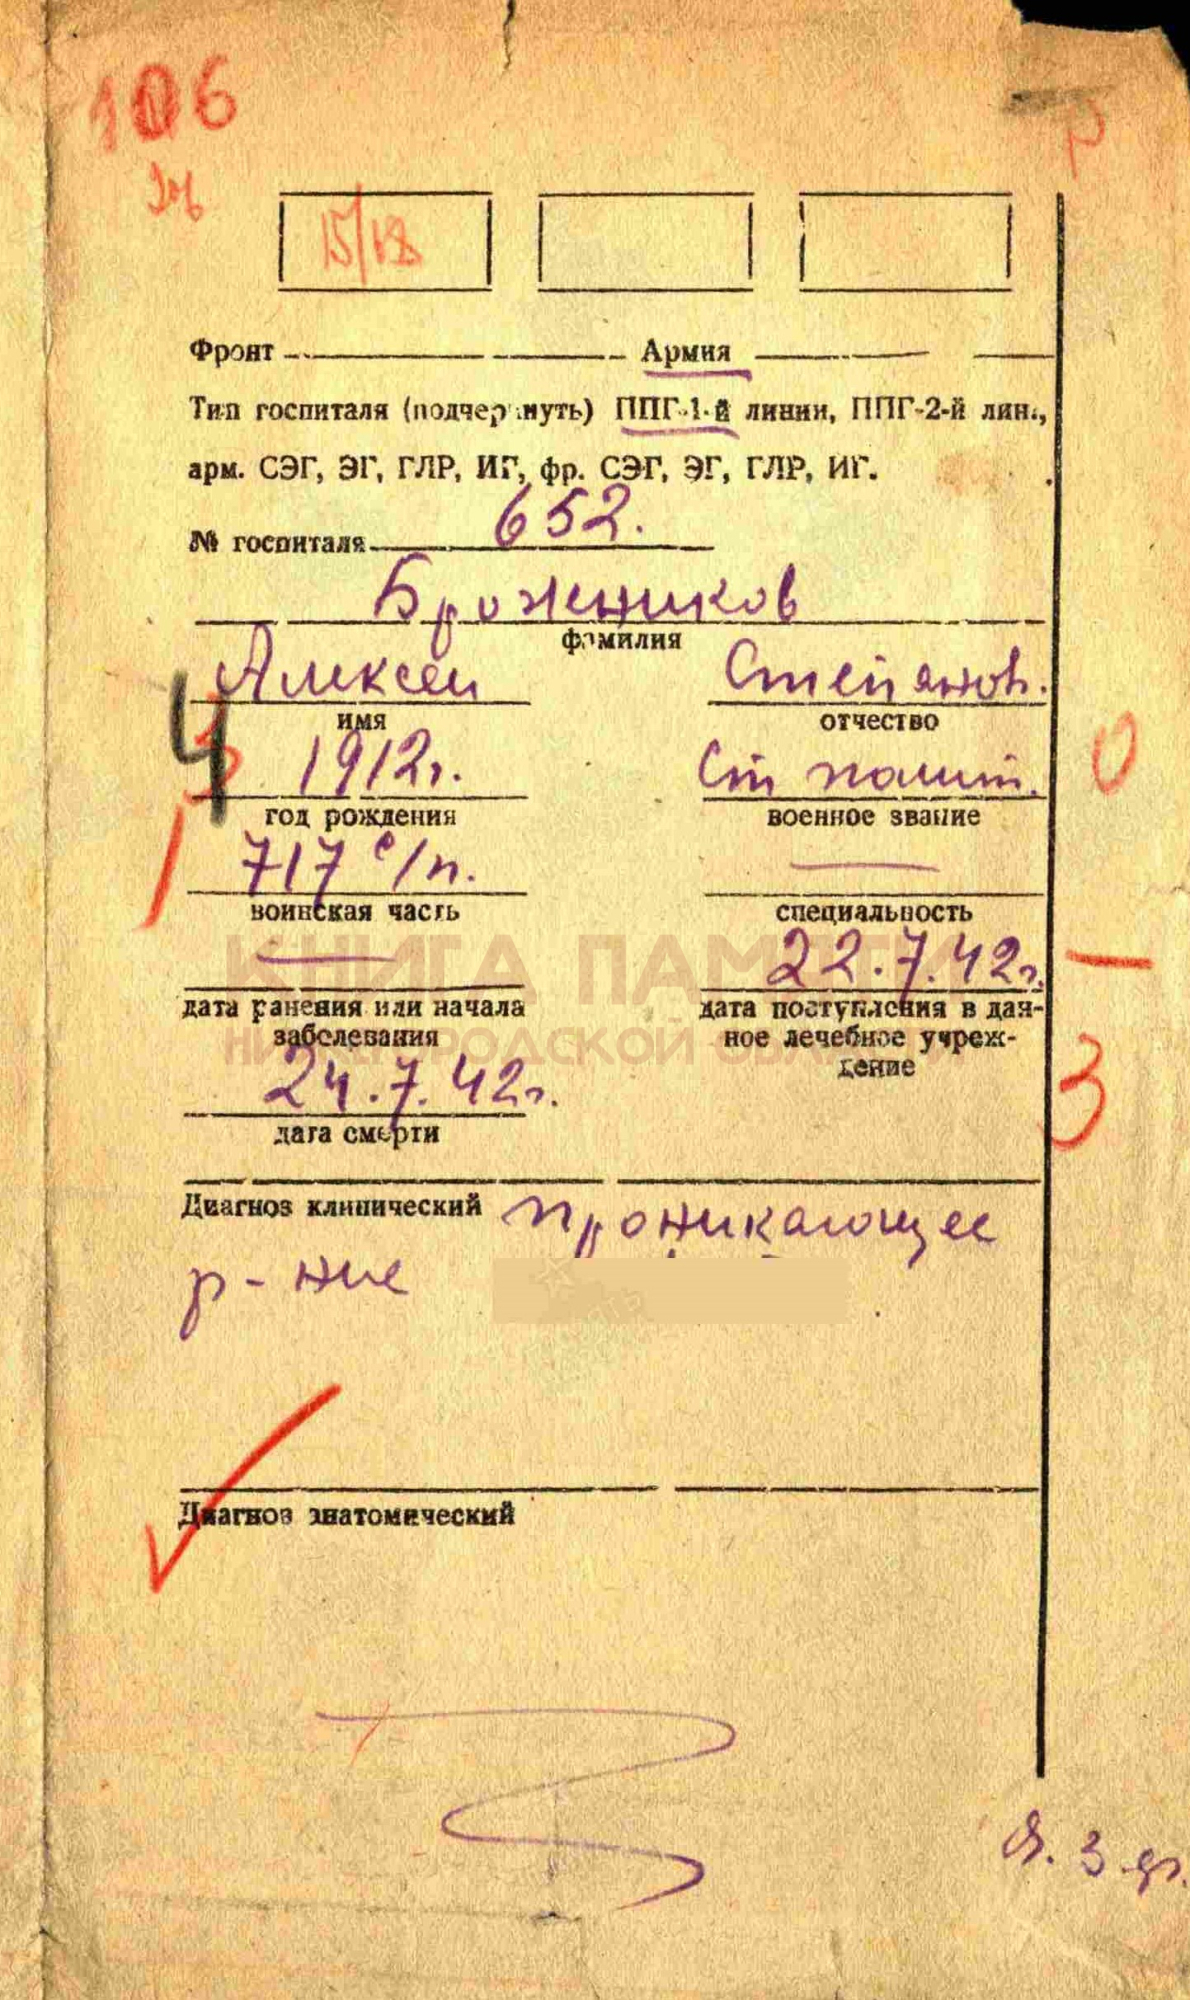 106
15/18
Фронт Армия
Тип госпиталя (подчеркнуть) ППГ-1-й линии, ППГ-2-й лин.,
арм. СЭГ, ЭГ, ГЛР, ИГ, фр. СЭГ, ЭГ, ГЛР, ИГ.
№ госпиталя 652.
Брожеников
фамилия
Алексей Степанов.
имя отчество
4 1912г. Ст полит. 0
год рождения военное звание
717 с/п.
воинская часть специальность
КНИГА ПАМЯТИ
22.7.42г.
дата ранения или начала дата поступления в дан-
заболевания ное лечебное учреж-
НИЖЕГОРОДСКОЙ
дение
24.7.42г. 3
дата смерти
Диагноз клинический проникающее
р-ние
Диагноз анатомический